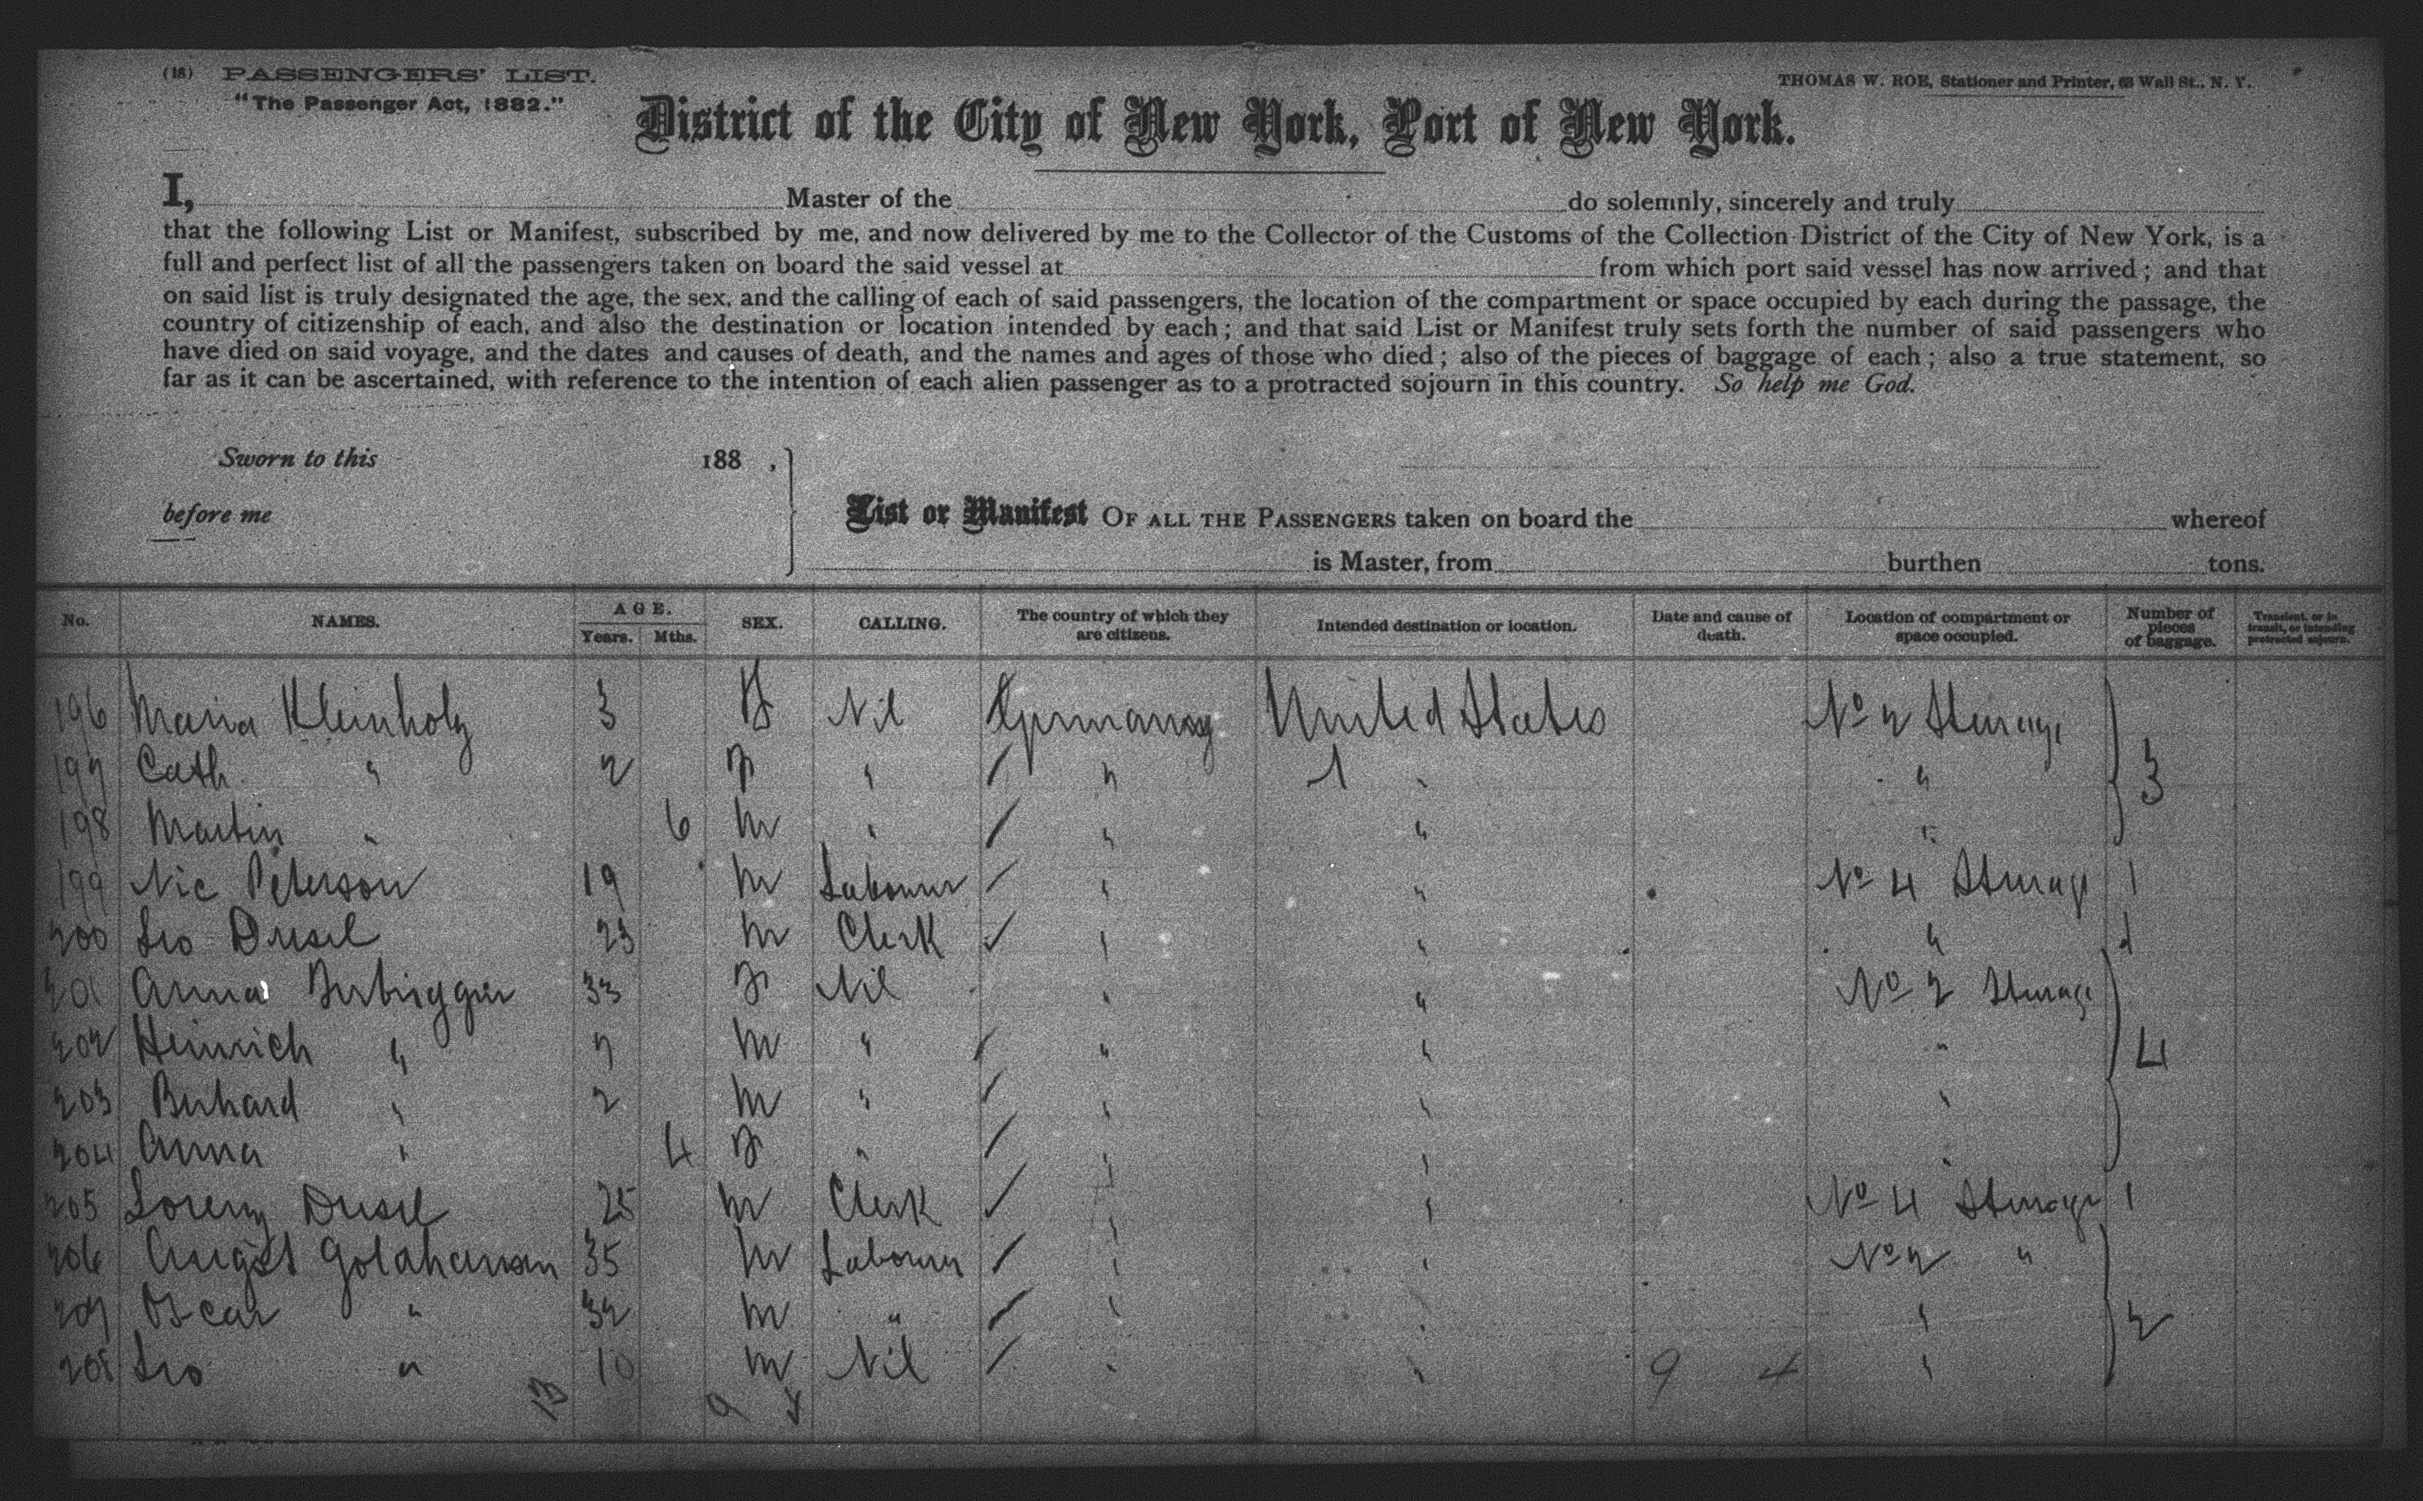 (18) PASSENGERS' LIST.
"The Passenger Act, 1882."
THOMAS W. ROE, Stationer and Printer, 63 Wall St., N. Y.
District of the City of New York, Port of New York.
I, Master of the do solemnly, sincerely and truly
that the following List or Manifest, subscribed by me, and now delivered by me to the Collector of the Customs of the Collection District of the City of New York, is a
full and perfect list of all the passengers taken on board the said vessel at from which port said vessel has now arrived; and that
on said list is truly designated the age, the sex, and the calling of each of said passengers, the location of the compartment or space occupied by each during the passage, the
country of citizenship of each, and also the destination or location intended by each; and that said List or Manifest truly sets forth the number of said passengers who
have died on said voyage, and the dates and causes of death, and the names and ages of those who died; also of the pieces of baggage of each; also a true statement, so
far as it can be ascertained, with reference to the intention of each alien passenger as to a protracted sojourn in this country. So help me God.
Sworn to this 188 ,
before me
List or Manifest OF ALL THE PASSENGERS taken on board the whereof
is Master, from burthen tons.
No. NAMES. AGE. Years. Mths. SEX. CALLING. The country of which they are citizens. Intended destination or location. Date and cause of death. Location of compartment or space occupied. Number of pieces of baggage. Transient, or in transit, or intending protracted sojourn.
196 Maria Kleinholz 3 F Nil Germany United States No 2 Sterage
197 Cath " 2 F " " 1 " " 3
198 Martin " 6 M " " " "
199 Nic Peterson 19 M Labourer " " No 4 Sterage 1
200 Leo Dusel 23 M Clerk " " " 1
201 Anna 33 F Nil " " No 2 Sterage
202 Heinrich " 7 M " " " " 4
203 Berhard " 2 M " " " "
204 Anna " 4 F " " " "
205 Lorenz Dusel 25 M Clerk " " No 4 Sterage 1
206 August 35 M Labourer " " No 2 "
207 Oscar " 32 M " " " " 2
208 Leo " 10 M Nil " " 9 4 "
13 9 4